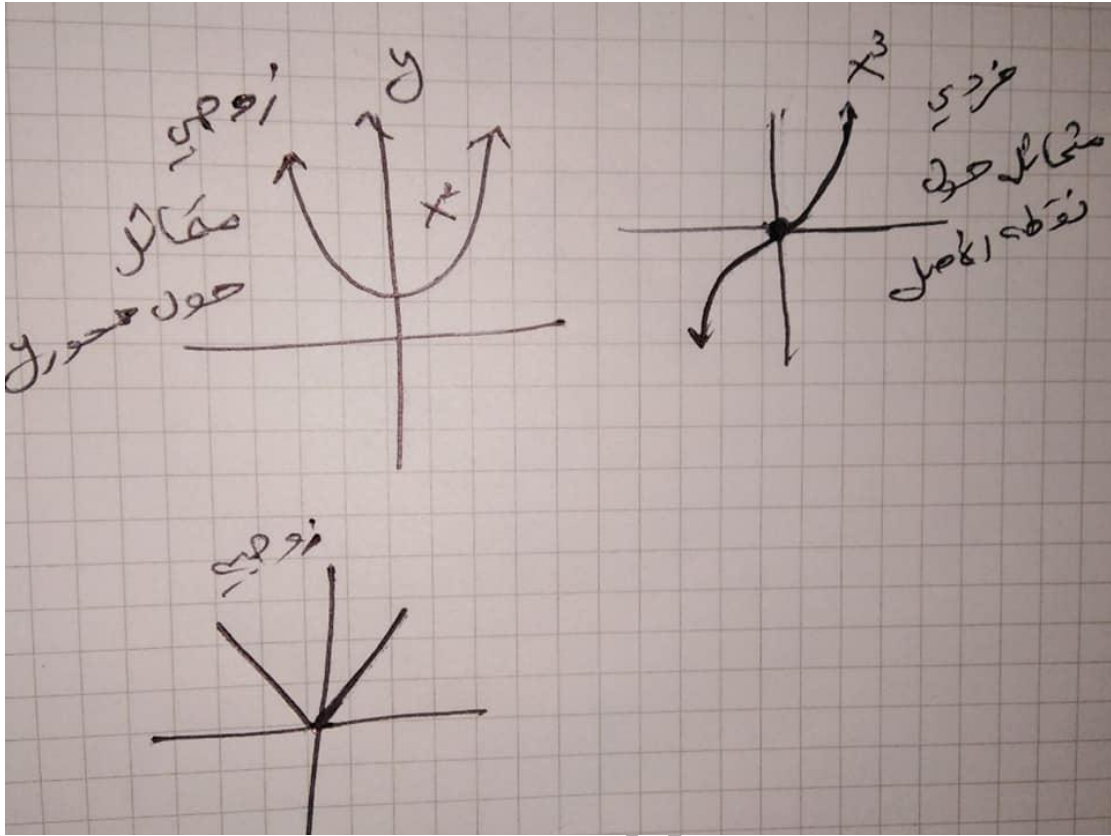 y
زوجي
x²
متماثل
حول محور y
x³
فردي
متماثل حول
نقطة الأصل
زوجي